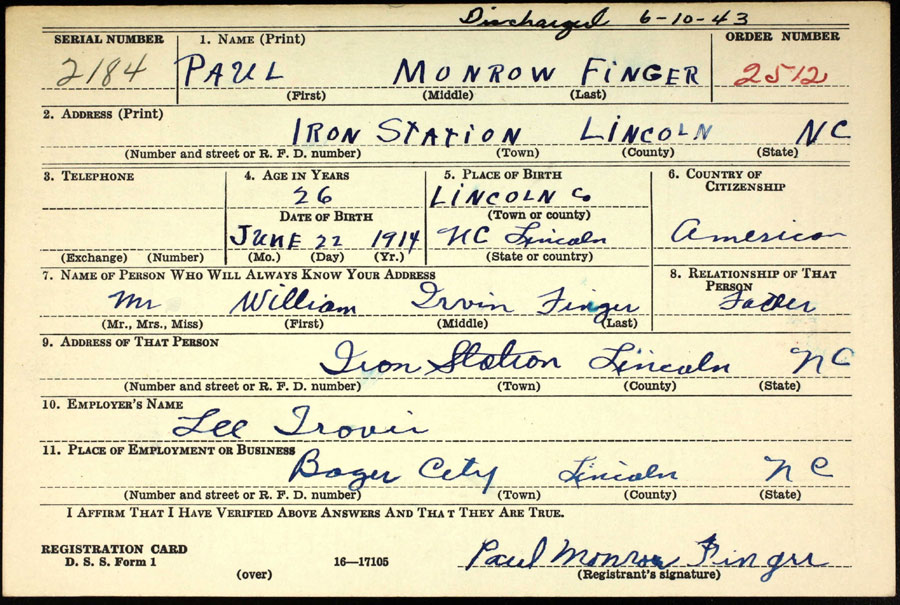 Discharged 6-10-43
SERIAL NUMBER 1. NAME (Print) ORDER NUMBER
2184 PAUL MONROW FINGER 2512
(First) (Middle) (Last)
2. ADDRESS (Print)
IRON STATION LINCOLN NC
(Number and street or R. F. D. number) (Town) (County) (State)
3. TELEPHONE 4. AGE IN YEARS 5. PLACE OF BIRTH 6. COUNTRY OF CITIZENSHIP
26 LINCOLN Co
DATE OF BIRTH (Town or county)
JUNE 22 1914 NC Lincoln American
(Exchange) (Number) (Mo.) (Day) (Yr.) (State or country)
7. NAME OF PERSON WHO WILL ALWAYS KNOW YOUR ADDRESS 8. RELATIONSHIP OF THAT PERSON
Mr William Irvin Finger Father
(Mr., Mrs., Miss) (First) (Middle) (Last)
9. ADDRESS OF THAT PERSON
Iron Station Lincoln NC
(Number and street or R. F. D. number) (Town) (County) (State)
10. EMPLOYER'S NAME
Lee
11. PLACE OF EMPLOYMENT OR BUSINESS
Boger City Lincoln NC
(Number and street or R. F. D. number) (Town) (County) (State)
I AFFIRM THAT I HAVE VERIFIED ABOVE ANSWERS AND THAT THEY ARE TRUE.
REGISTRATION CARD
D. S. S. Form 1 16—17105 Paul Monrow Finger
(over) (Registrant's signature)